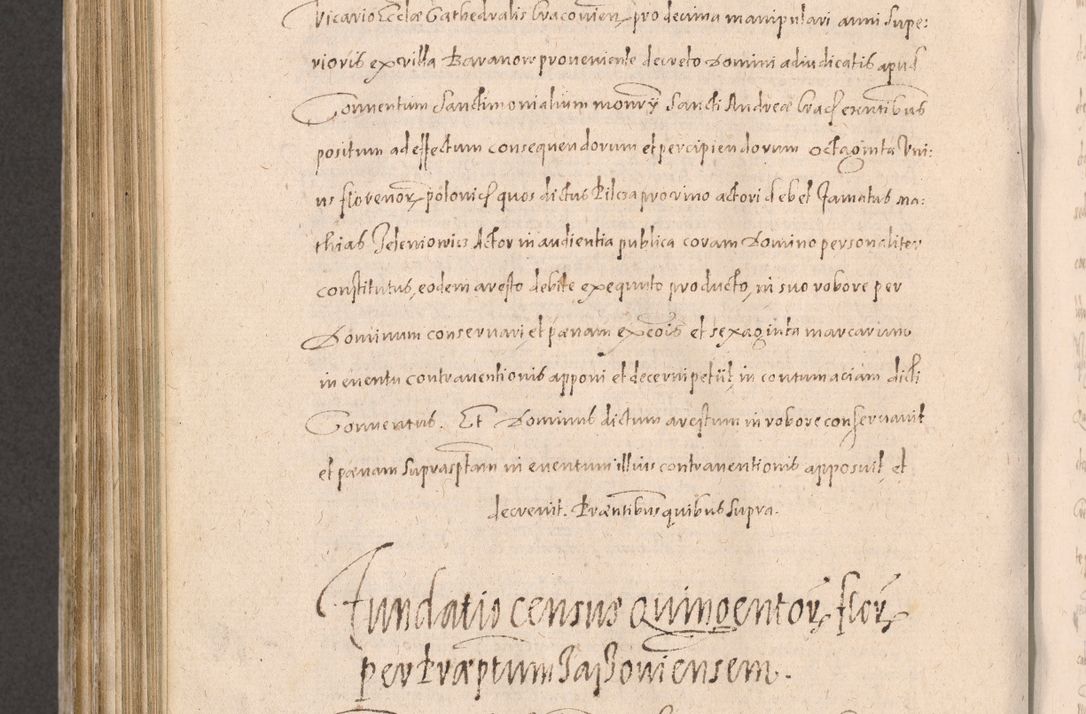 Vicario Ecclæ Cathedralis Cracovien, pro decima manipulari anni supe:
rioris ex villa Baranow proveniente decreto Domini adiudicatis apud
Conventum Sanctimonialium monrÿ Sancti Andreæ Crac̃ exentibus
positum ad effectum consequendorum et percipiendorum octoginta Uni:
us florenor, polonic̃ quos dictus Pilcza provino actori debet Famatus Ma:
thias Jeleniowicz Actor in audientia publica coram Domino personaliter
constitutus, eodem aresto debite exequuto producto, in suo robore per
Dominum conservari, et pænam excõis et sexaginta marcarum
in eventu contraventionis apponi et decerni petiit, in contumaciam dicti
Conventus. Et Dominus dictum arestum in robore conservavit
et pænam suprasptam in eventum illius contraventionis apposuit, et
decrevit. Præntibus quibus supra.
Fundatio census Quingentor, flor,
per Præptum Jaßoviensem.